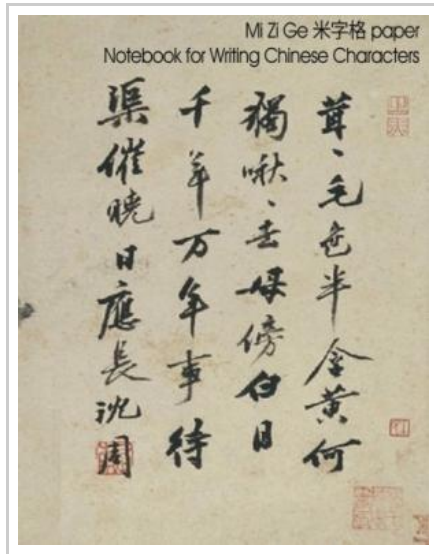 Mi Zi Ge 米字格 paper
Notebook for Writing Chinese Characters
茸、毛色半含黄何
獨啾、去母傍白日
千年万年事待
渠催曉日應長沈周